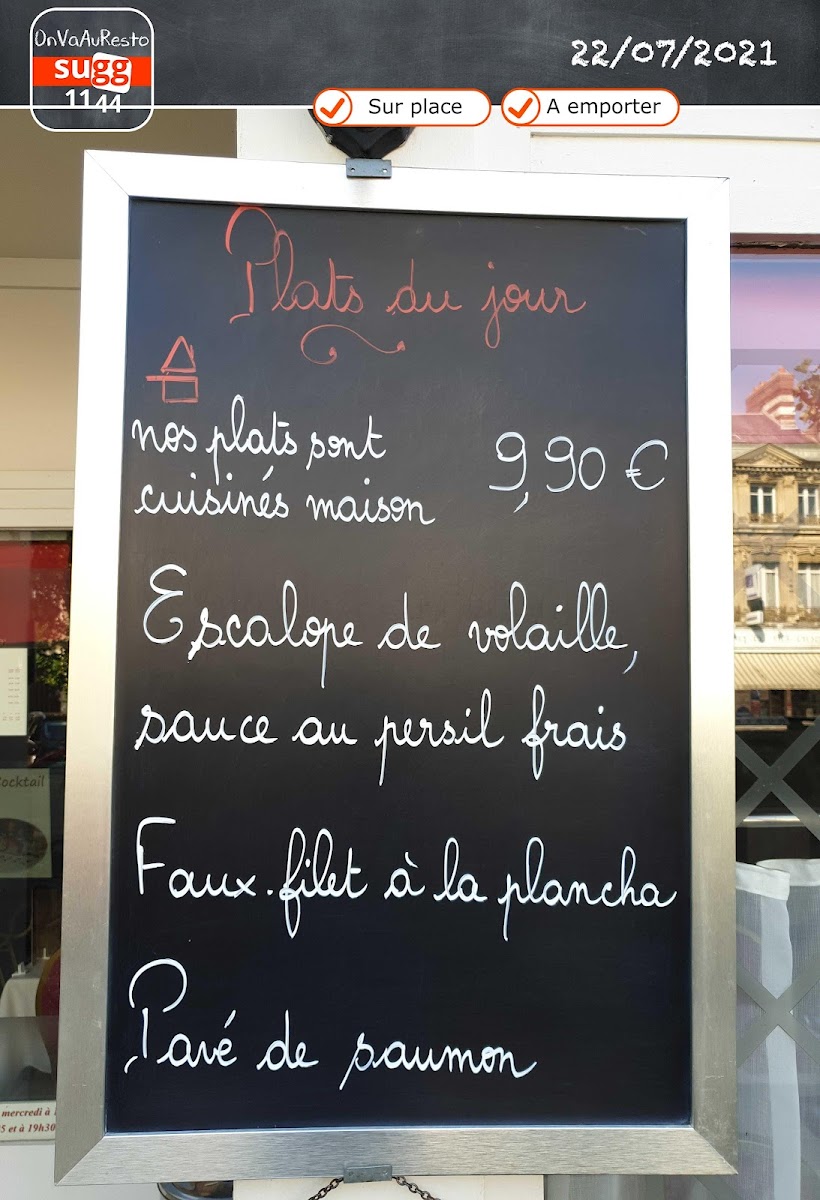 OnVaAuResto
sugg
1144
22/07/2021
Sur place
A emporter
Plats du jour
nos plats sont
cuisinés maison
9,90 €
Escalope de volaille,
sauce au persil frais
Faux-filet à la plancha
Pavé de saumon
Cocktail
mercredi à
5 et à 19h30